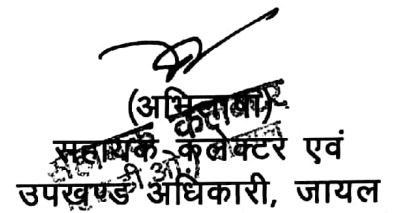 (अभिलाषा)
सहायक कलेक्टर एवं
उपखण्ड अधिकारी, जायल